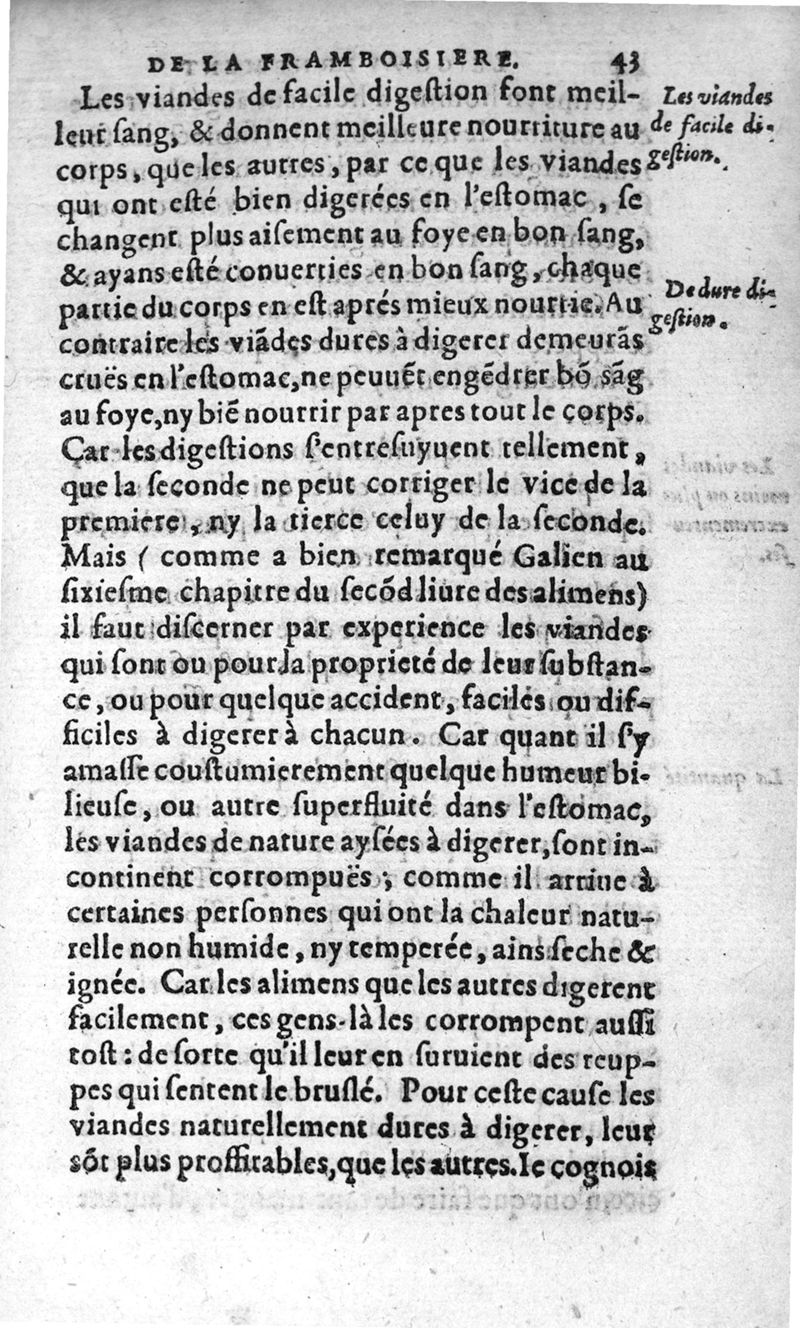 DE LA FRAMBOISIERE. 43
Les viandes de facile digeſtion font meil-
leur ſang, & donnent meilleure nourriture au
corps, que les autres, par ce que les viandes
qui ont eſté bien digerées en l'eſtomac, ſe
changent plus aiſement au foye en bon ſang,
& ayans eſté conuerties en bon ſang, chaque
partie du corps en eſt aprés mieux nourrie. Au
contraire les viãdes dures à digerer demeurãs
cruës en l'eſtomac, ne peuuẽt engẽdrer bõ sãg
au foye, ny biẽ nourrir par apres tout le corps.
Car les digeſtions ſ'entreſuyuent tellement,
que la ſeconde ne peut corriger le vice de la
premiere, ny la tierce celuy de la ſeconde.
Mais ( comme a bien remarqué Galien au
ſixieſme chapitre du ſecõd liure des alimens)
il faut diſcerner par experience les viandes
qui ſont ou pour la proprieté de leur ſubſtan-
ce, ou pour quelque accident, faciles ou dif-
ficiles à digerer à chacun. Car quant il ſ'y
amaſſe couſtumierement quelque humeur bi-
lieuſe, ou autre ſuperfluité dans l'eſtomac,
les viandes de nature ayſées à digerer, ſont in-
continent corrompuës ; comme il arriue à
certaines perſonnes qui ont la chaleur natu-
relle non humide, ny temperée, ains ſeche &
ignée. Car les alimens que les autres digerent
facilement, ces gens-là les corrompent auſſi
toſt : de ſorte qu'il leur en ſuruient des reup-
pes qui ſentent le bruſlé. Pour ceſte cauſe les
viandes naturellement dures à digerer, leur
sõt plus proffitables, que les autres. Ie cognois
Les viandes
de facile di-
geſtion.
De dure di-
geſtion.